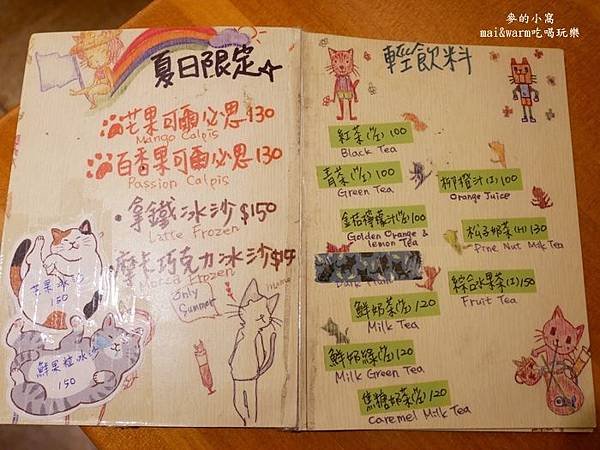 麥的小窩
mai&warm吃喝玩樂
夏日限定
芒果可爾必思130
Mango Calpis
百香果可爾必思130
Passion Calpis
·拿鐵冰沙$150
Latte Frozen
·摩卡巧克力冰沙$15
Frozen
only
Summer
芒果冰沙
150
鮮果粒冰沙
150
輕飲料
紅茶(I/H) 100
Black Tea
青茶(I/H) 100
Green Tea
金桔檸檬汁(I/H)100
Golden Orange &
lemon Tea
鮮奶茶(I/H) 120
Milk Tea
鮮奶綠(I/H)120
Milk Green Tea
焦糖奶茶(I/H) 120
Caremel Milk Tea
柳橙汁(I)100
Orange Juice
松子奶茶(H)130
Pine Nut Milk Tea
綜合水果茶(I)150
Fruit Tea